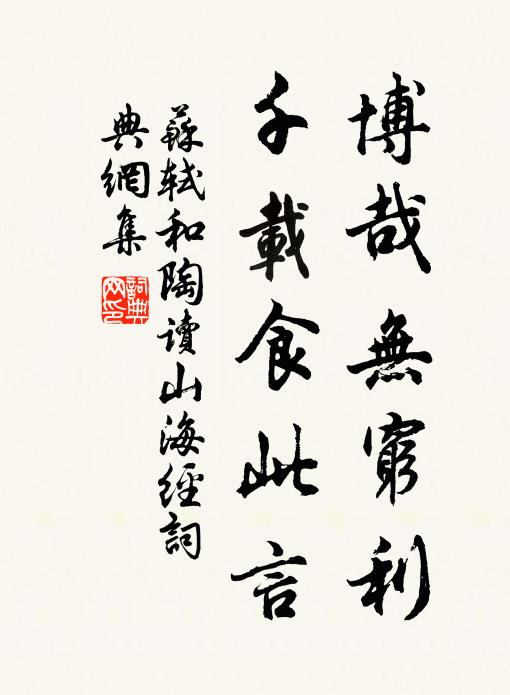 博哉無窮利
千載食此言
蘇軾和陶讀山海經詞
典網集
詞典
网印